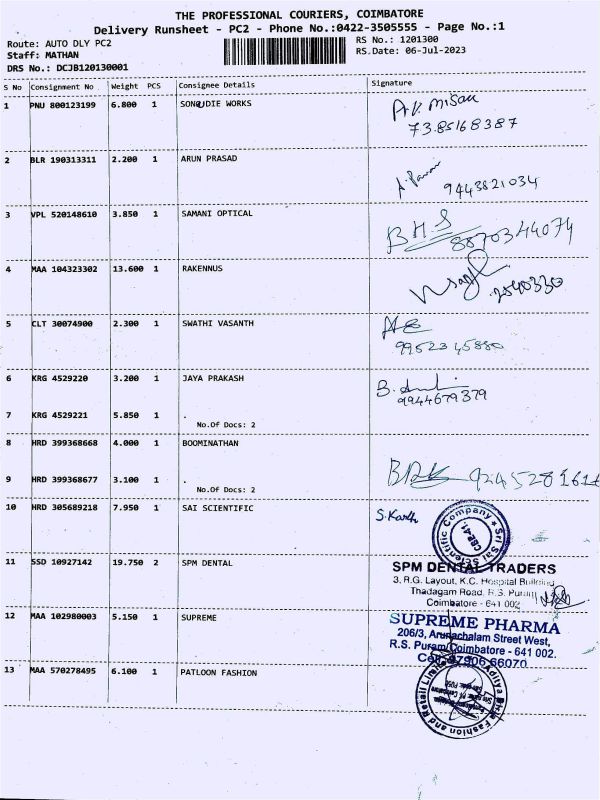 THE PROFESSIONAL COURIERS, COIMBATORE
Delivery Runsheet - PC2 - Phone No.:0422-3505555 - Page No.:1
Route: AUTO DLY PC2 RS No.: 1201300
Staff: MATHAN RS.Date: 06-Jul-2023
DRS No.: DCJB120130001
S No Consignment No Weight PCS Consignee Details Signature
1 PNU 800123199 6.800 1 SONGUDIE WORKS
7385168387
2 BLR 190313311 2.200 1 ARUN PRASAD
9443821034
3 VPL 520148610 3.850 1 SAMANI OPTICAL BHS
8870344074
4 MAA 104323302 13.600 1 RAKENNUS
2540330
5 CLT 30074900 2.300 1 SWATHI VASANTH
9952345880
6 KRG 4529220 3.200 1 JAYA PRAKASH B.
9944679379
7 KRG 4529221 5.850 1 .
No.Of Docs: 2
8 HRD 399368668 4.000 1 BOOMINATHAN
9 HRD 399368677 3.100 1 .
No.Of Docs: 2
10 HRD 305689218 7.950 1 SAI SCIENTIFIC S.Karth
Sri Sai Scientific Company
CBE-41.
11 SSD 10927142 19.750 2 SPM DENTAL SPM DENTAL TRADERS
3, R.G. Layout, K.C. Hospital Building
Thadagam Road, R.S. Puram
Coimbatore - 641 002
12 MAA 102980003 5.150 1 SUPREME SUPREME PHARMA
206/3, Arunachalam Street West,
R.S. Puram, Coimbatore - 641 002.
Cell: 97906 66070
13 MAA 570278495 6.100 1 PATLOON FASHION
Aditya Birla Fashion and Retail Limited